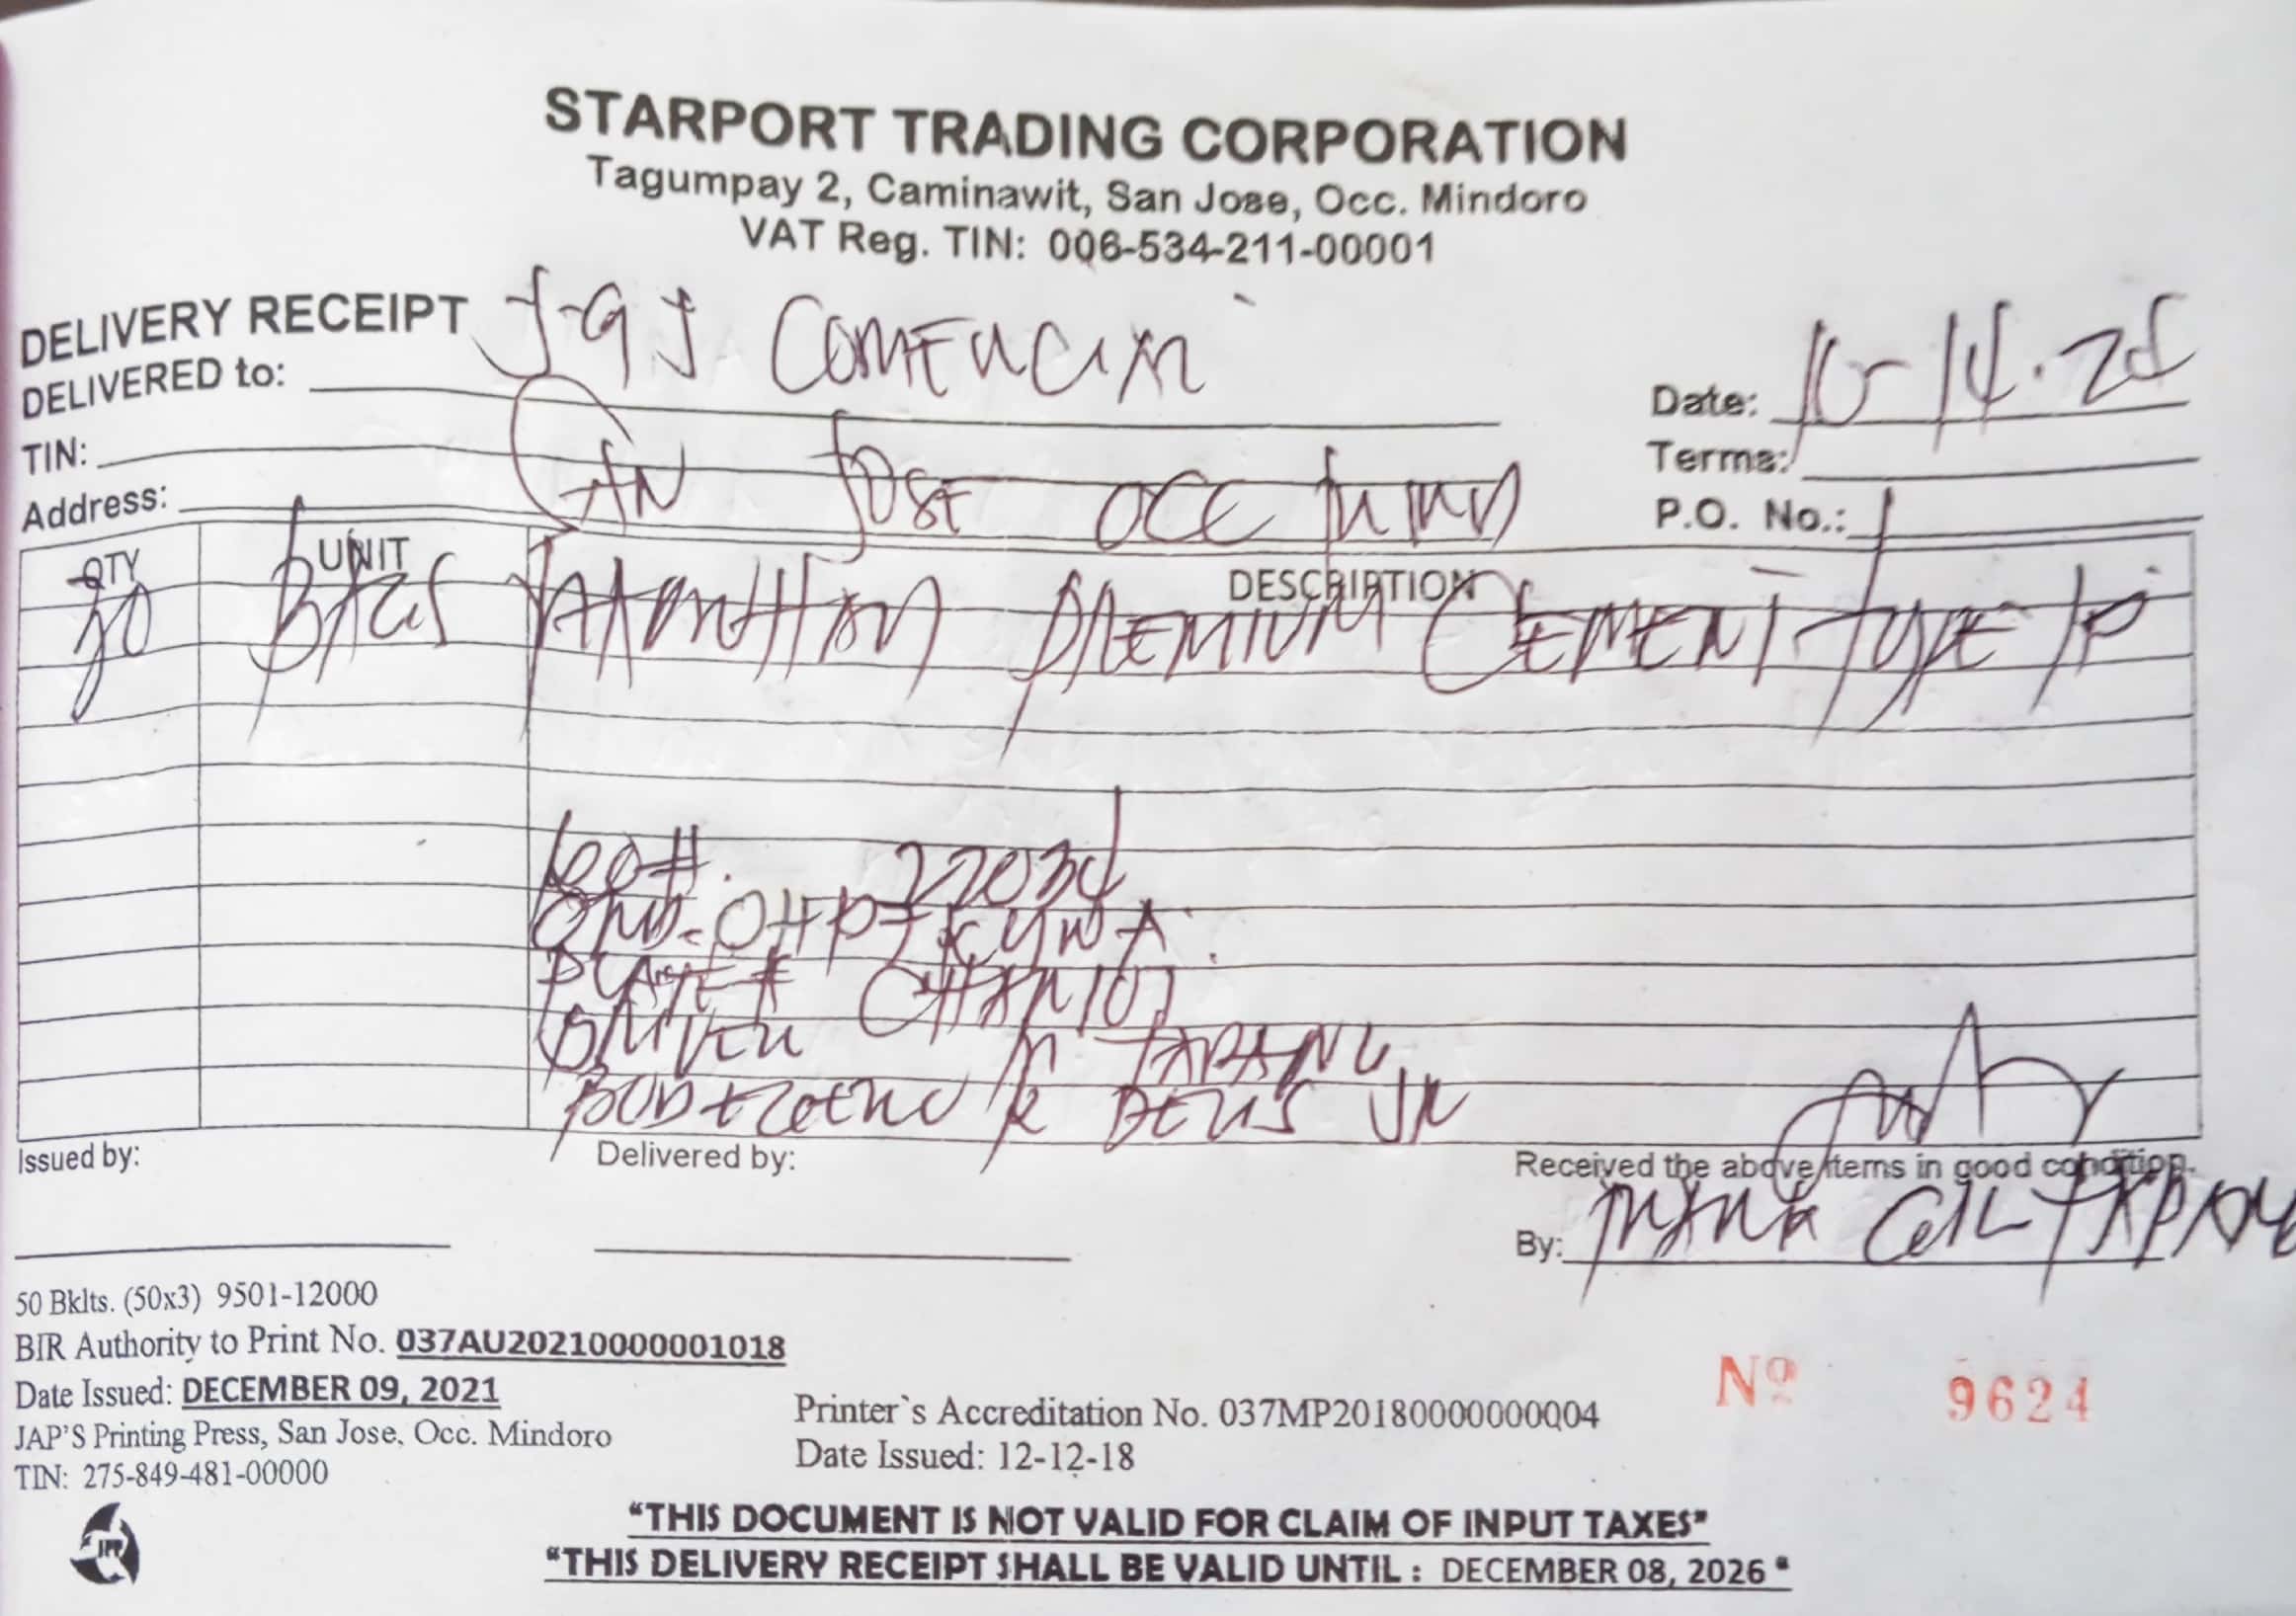 STARPORT TRADING CORPORATION
Tagumpay 2, Caminawit, San Jose, Occ. Mindoro
VAT Reg. TIN: 006-534-211-00001
DELIVERY RECEIPT
DELIVERED to: JGJ
Date: 10-14-25
TIN:
Terms:
Address: SAN JOSE OCC
P.O. No.:
QTY UNIT DESCRIPTION
BAGS PREMIUM CEMENT TYPE 1P
22034
PLATE # CHARIOT
DRIVER M TAPANG
JR
Issued by:
Delivered by:
Received the above items in good condition.
By: MARK TAPANG
50 Bklts. (50x3) 9501-12000
BIR Authority to Print No. 037AU20210000001018
Date Issued: DECEMBER 09, 2021
JAP'S Printing Press, San Jose, Occ. Mindoro
TIN: 275-849-481-00000
Printer`s Accreditation No. 037MP20180000000004
Date Issued: 12-12-18
Nº 9624
JPP
“THIS DOCUMENT IS NOT VALID FOR CLAIM OF INPUT TAXES”
“THIS DELIVERY RECEIPT SHALL BE VALID UNTIL : DECEMBER 08, 2026 “